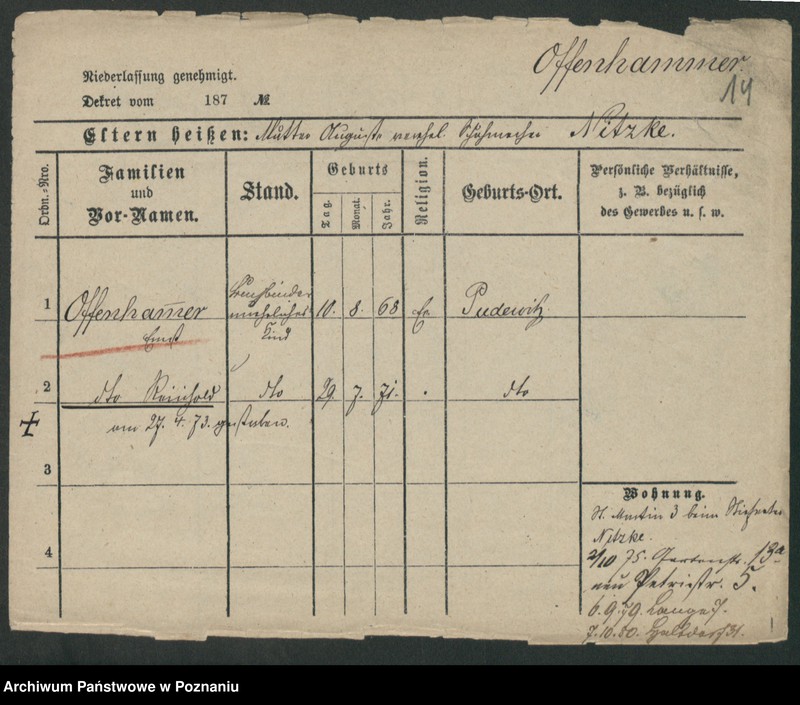 Offenhammer.
14
Niederlassung genehmigt.
Dekret vom 187 №
Eltern heißen: Mutter Auguste verehel. Nitzke.
Ordn.-Nro.
Familien
und
Vor-Namen.
Stand.
Geburts
Tag.
Monat.
Jahr.
Religion.
Geburts-Ort.
Persönliche Verhältnisse,
z. B. bezüglich
des Gewerbes u. s. w.
1
Offenham̄er
Ernst
Buchbinder
uneheliches
Kind
10. 8. 68 Ev. Pudewitz.
2
dto Reinhold dto 29. 7. 71. dto
am 27. 4. 73. gestorben.
3
4
Wohnung.
St. Martin 3 beim Stiefvater
Nitzke.
2/10 75. Gartenstr. 13a
neu Petristr. 5.
6.9.79. Langestr.
7.10.80. Halbdorfstr.
Archiwum Państwowe w Poznaniu